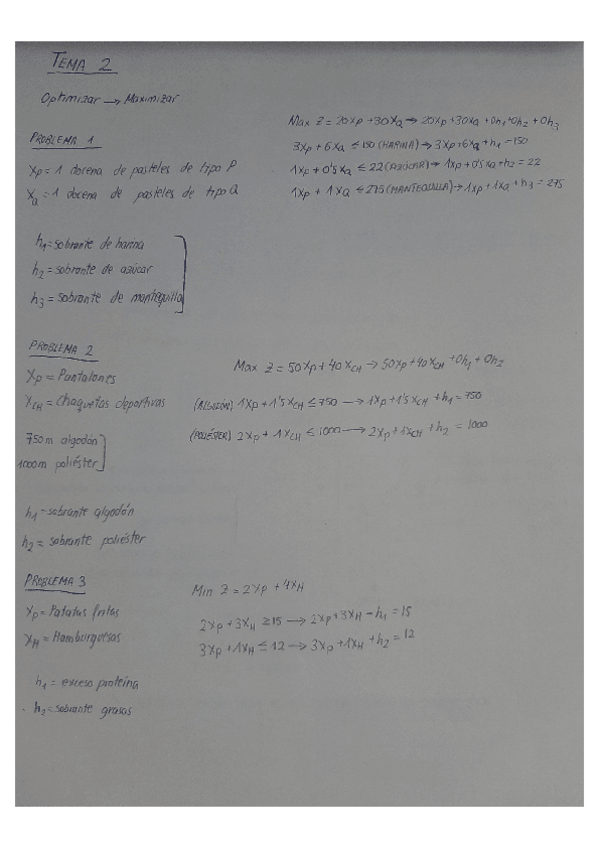 TEMA 2
Optimizar → Maximizar
PROBLEMA 1
Xp = 1 docena de pasteles de tipo P
XQ = 1 docena de pasteles de tipo Q
Max Z = 20Xp + 30XQ → 20Xp + 30XQ + 0h1 + 0h2 + 0h3
3Xp + 6XQ ≤ 150 (HARINA) → 3Xp + 6XQ + h1 = 150
1Xp + 0'5XQ ≤ 22 (AZÚCAR) → 1Xp + 0'5XQ + h2 = 22
1Xp + 1XQ ≤ 275 (MANTEQUILLA) → 1Xp + 1XQ + h3 = 275
h1 = sobrante de harina
h2 = sobrante de azúcar
h3 = sobrante de mantequilla
PROBLEMA 2
Xp = Pantalones
XCH = Chaquetas deportivas
750m algodón
1000m poliéster
Max Z = 50Xp + 40XCH → 50Xp + 40XCH + 0h1 + 0h2
(ALGODÓN) 1Xp + 1'5XCH ≤ 750 → 1Xp + 1'5XCH + h1 = 750
(POLIÉSTER) 2Xp + 1XCH ≤ 1000 → 2Xp + 1XCH + h2 = 1000
h1 = sobrante algodón
h2 = sobrante poliéster
PROBLEMA 3
Xp = Patatas fritas
XH = Hamburguesas
Min Z = 2Xp + 4XH
2Xp + 3XH ≥ 15 → 2Xp + 3XH - h1 = 15
3Xp + 1XH ≤ 12 → 3Xp + 1XH + h2 = 12
h1 = exceso proteína
h2 = sobrante grasas